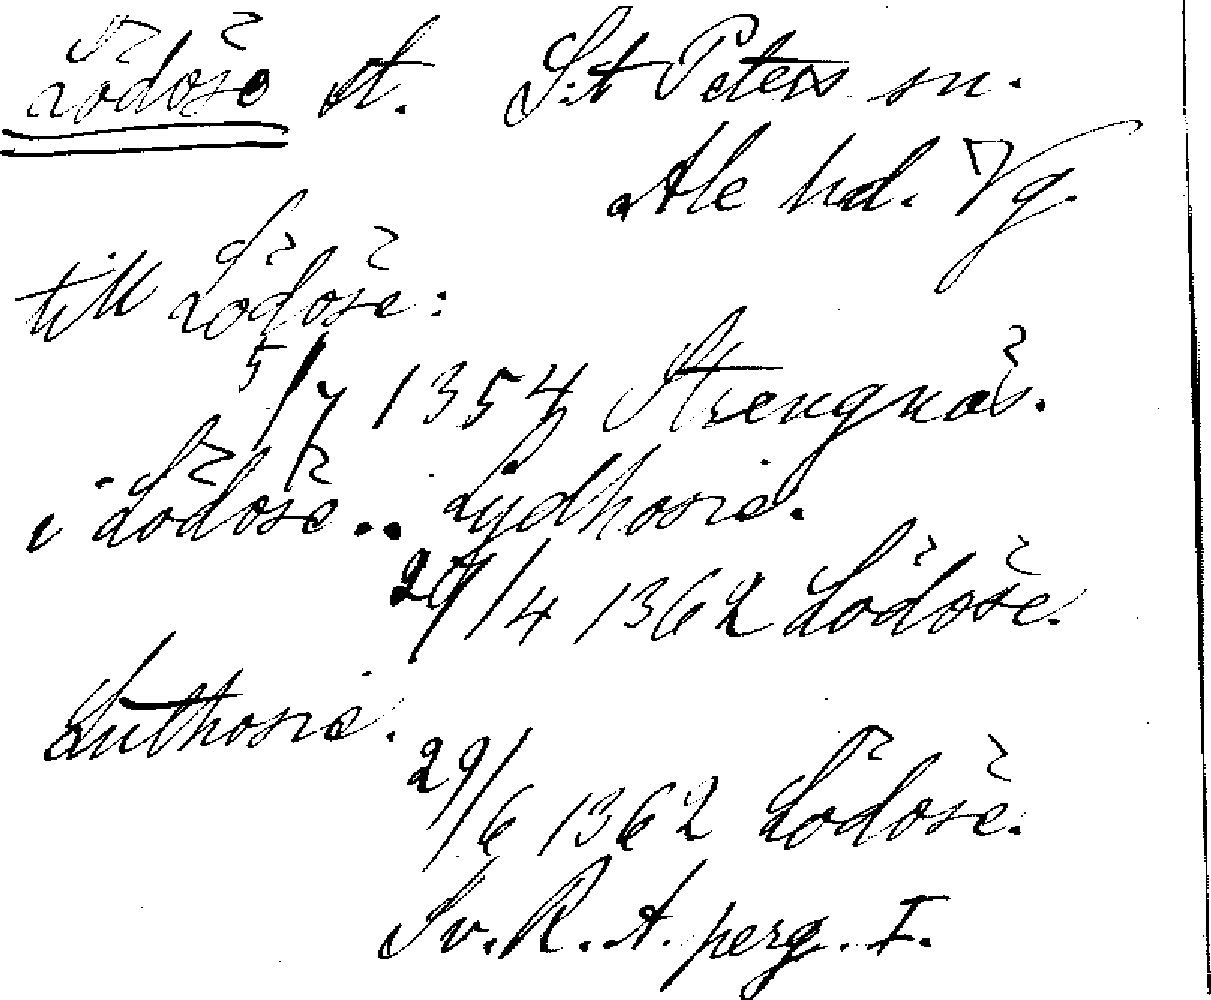 Lödöse st. S:t Peters sn.
Ale hd. Vg.
till Lödöse:
5/7 1354 Strengnäs.
i Lödöse.. Lydhosie.
29/4 1362 Lödöse.
Luthosie.
29/6 1362 Lödöse.
Sv. R. A. perg. I.